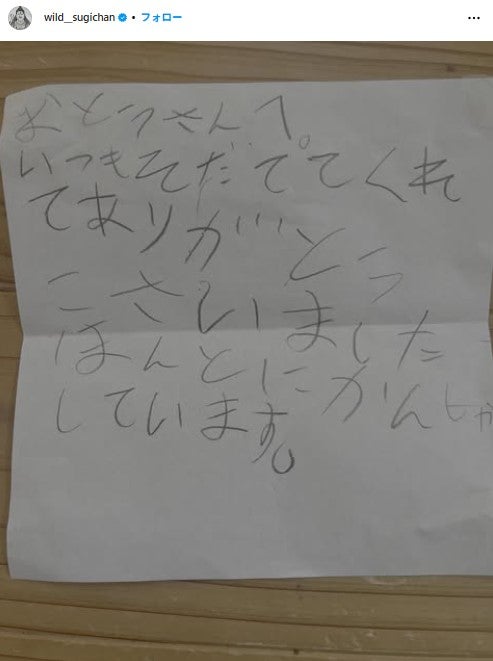 wild__sugichan • フォロー
おとうさんへ
いつもそだててくれ
てありがとう
ございました
ほんとにかんしゃ
しています。